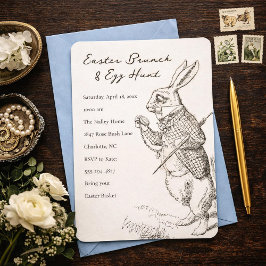 Easter Brunch
& Egg Hunt
Saturday, April 18, 2022
10:00 am
The Nalley Home
2847 Rose Bush Lane
Charlotte, NC
RSVP to Kate:
555-124-2617
Bring your
Easter Basket